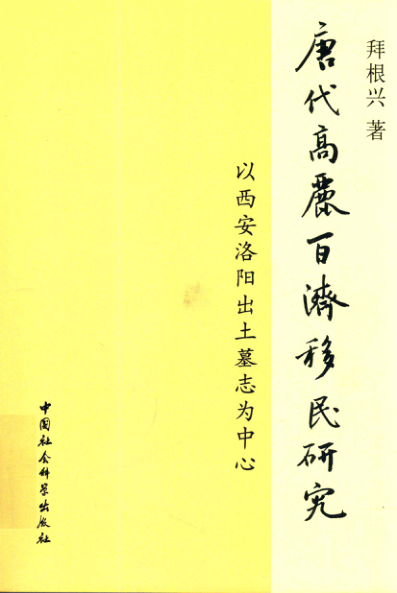 拜根兴 著
唐代高麗百濟移民研究
以西安洛阳出土墓志为中心
中国社会科学出版社